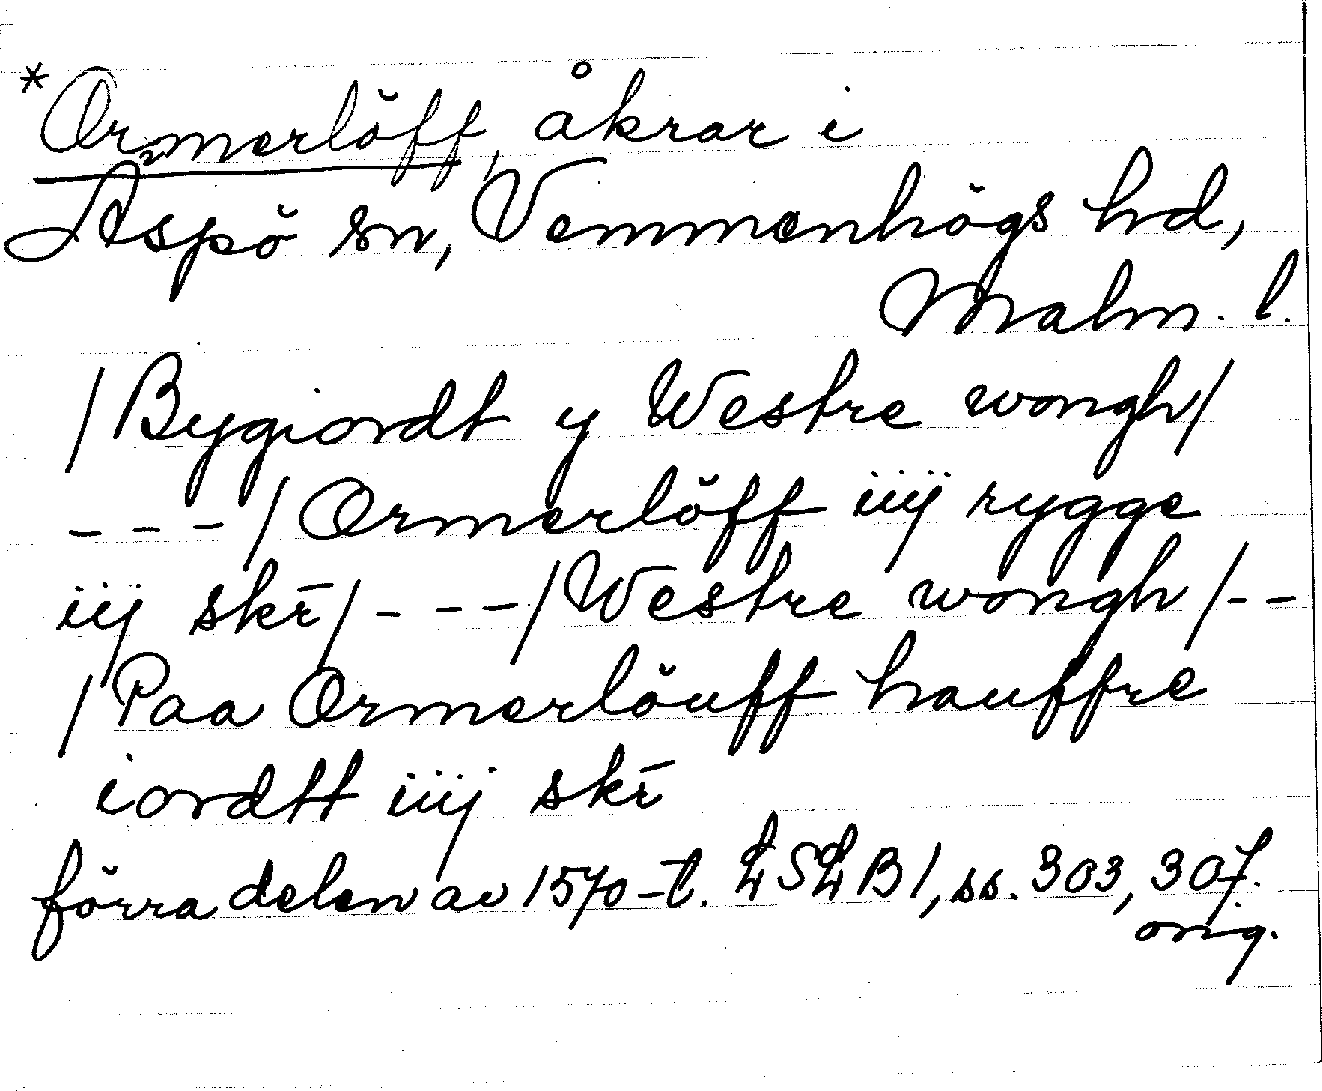 *Ormerlöff, åkrar i
Äspö sn, Vemmenhögs hd,
Malm. l.
/Bygiordt y Westre wongh/
---/Ormerlöff iiij rygge
iij skr̄/---/Westre wongh/--
/Paa Ormerlöuff hauffre
iordtt iiij skr̄
förra delen av 1570-t. LSLB1, ss. 303, 307.
orig.